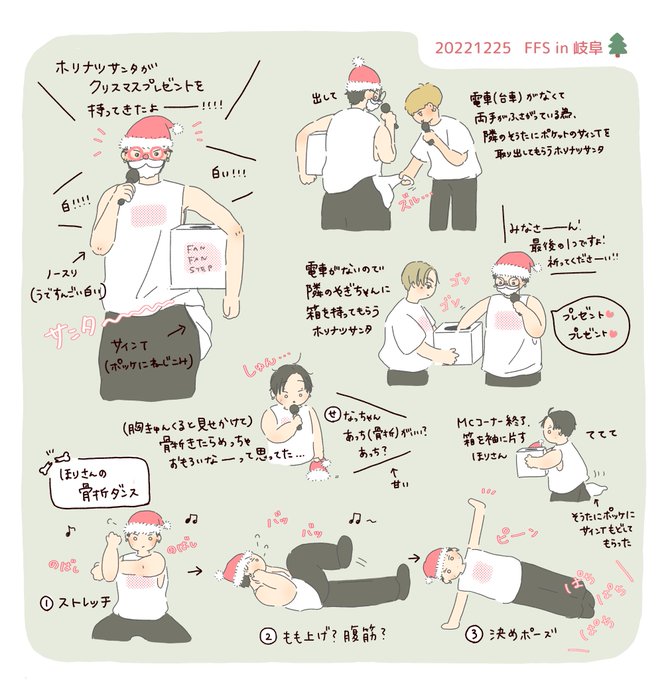 20221225 FFS in 岐阜
ホリナツサンタが
クリスマスプレゼントを
持ってきたよー!!!!
白!!!!
白い!!!
ノースリ
(うですんごい白い)
FAN
FAN
STEP
サンタ
サインT
(ポッケにねじこみ)
出して
電車(台車)がなくて
両手がふさがっている為、
隣のそうたにポケットのサインTを
取り出してもらうホリナツサンタ
ズル…
電車がないので
隣のやぎちゃんに
箱を持ってもらう
ホリナツサンタ
ゴソ
ゴソ
みなさーーん!
最後の1つですよ!
祈ってくださーい!!
プレゼント
プレゼント
しゅん…
(胸きゅんくると見せかけて)
骨折きたらめっちゃ
おもろいなーって思ってた…
せ なっちゃん
あっち(骨折)がいい?
あっち?
甘い
MCコーナー終了、
箱を袖に片す
ほりさん
ててて
そうたにポッケに
サインTもどして
もらった
ほりさんの
骨折ダンス
のばし
のばし
①ストレッチ
バッ
バッ
②もも上げ?腹筋?
ピーン
ぱち
ぱち
ぱち
③決めポーズ